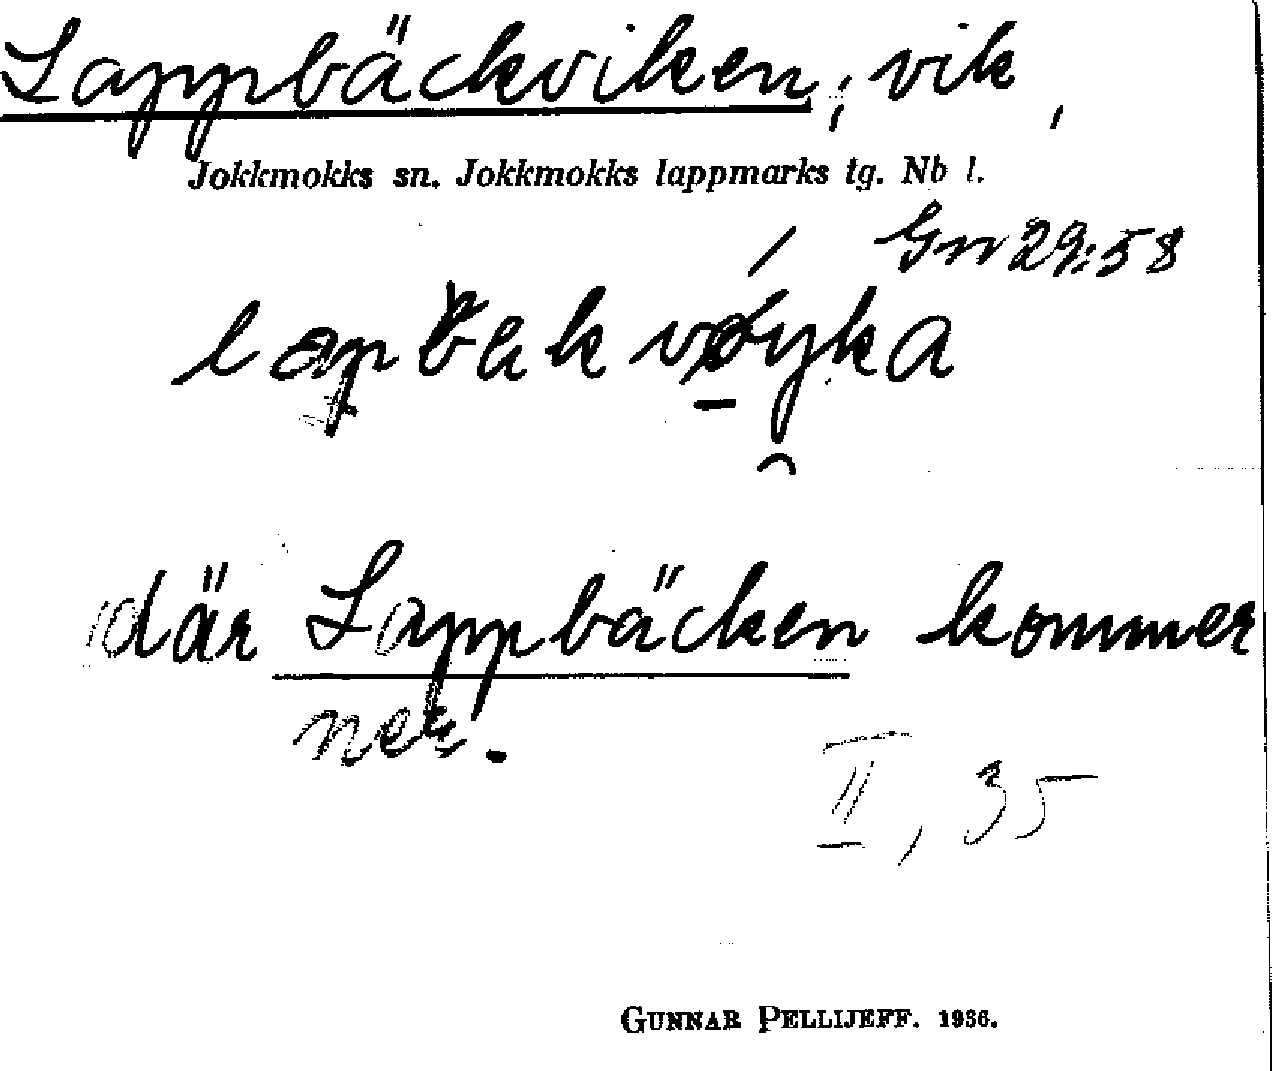 Lappbäckviken, vik,
Jokkmokks sn. Jokkmokks lappmarks tg. Nb l.
Gn 29:58
där Lappbäcken kommer
ner.
II, 35
GUNNAR PELLIJEFF. 1936.